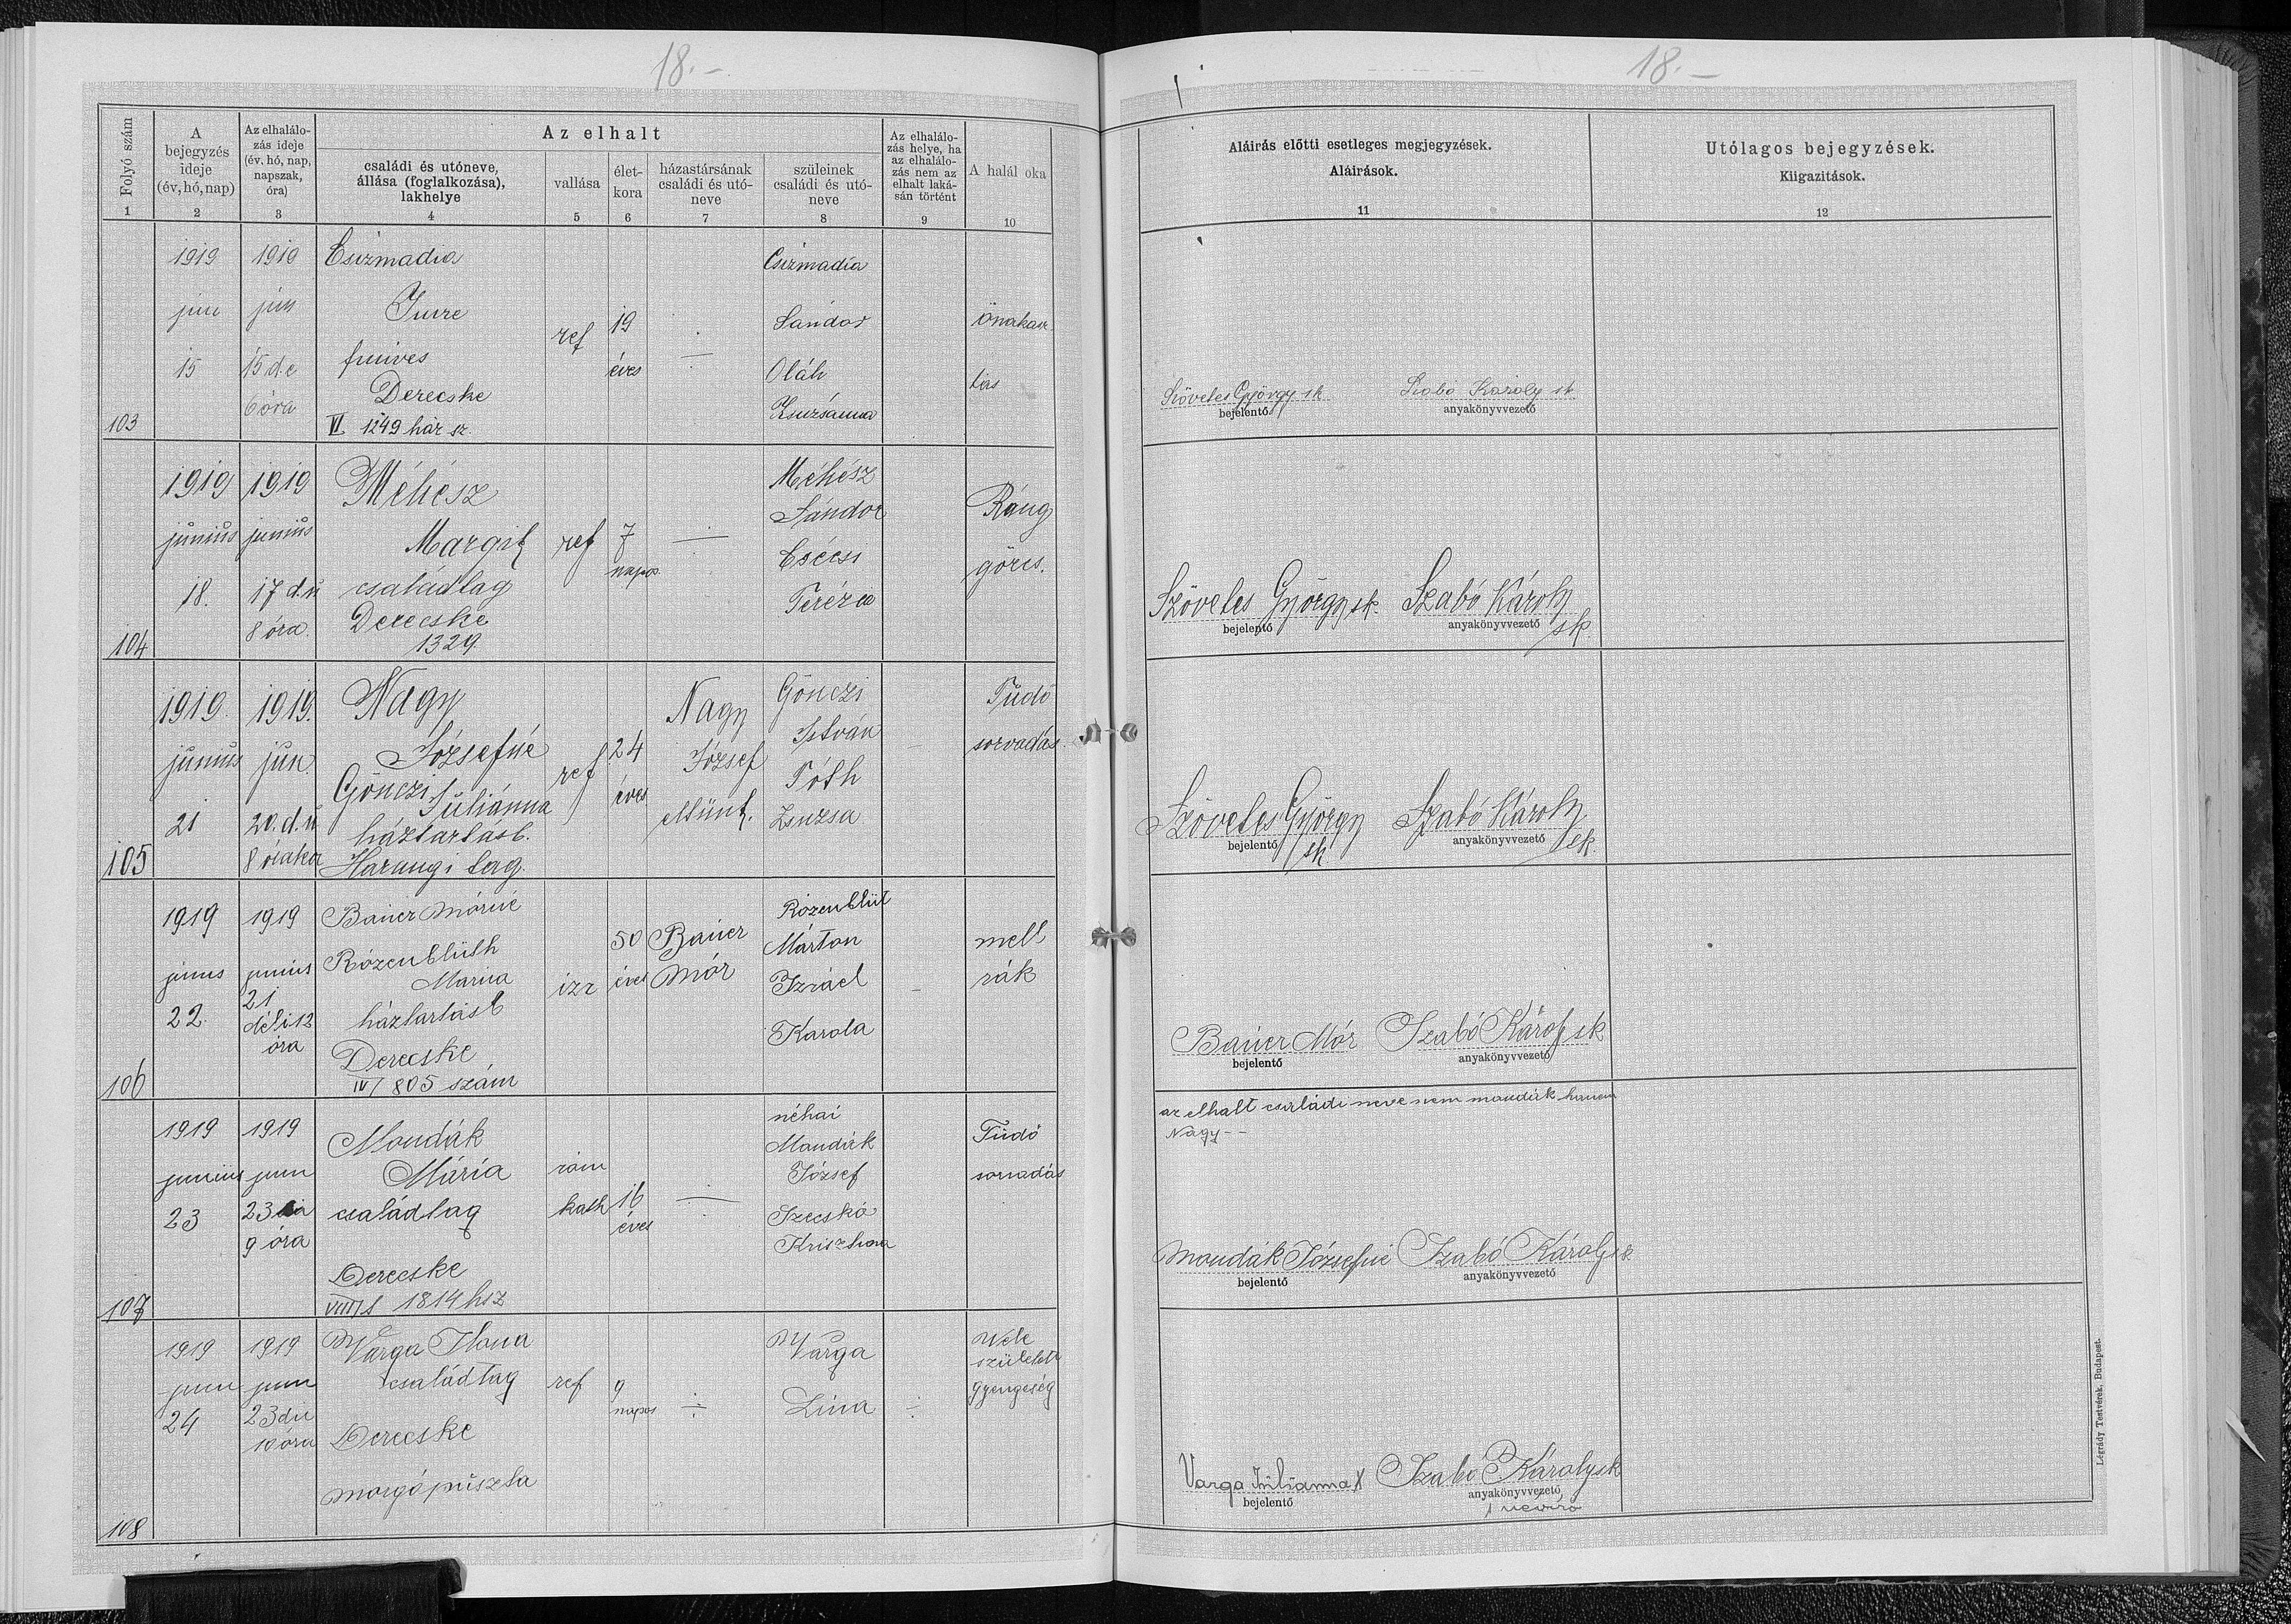 18.-
18.-
Folyó szám
1
A bejegyzés ideje (év, hó, nap)
2
Az elhalálozás ideje (év, hó, nap, napszak, óra)
3
Az elhalt
családi és utóneve, állása (foglalkozása), lakhelye
4
vallása
5
életkora
6
házastársának családi és utóneve
7
szüleinek családi és utóneve
8
Az elhalálozás helye, ha az elhalálozás nem az elhalt lakásán történt
9
A halál oka
10
Aláirás előtti esetleges megjegyzések.
Aláirások.
11
Utólagos bejegyzések.
Kiigazitások.
12
103
1919
jun
15
1919
jun
15 d.e
6 óra
Csizmadia
Imre
fmives
Derecske
VI 1249 hár sz.
ref
19
éves
Csizmadia
Sándor
Oláh
Zsuzsánna
önakasz
tás
Szövetes György sk
bejelentő
Szabó Károly sk
anyakönyvvezető
104
1919
június
18.
1919
junius
17 d.u
8 óra.
Méhész
Margit
családtag
Derecske
1329.
ref
7
napos
Méhész
Sándor
Csécsi
Terézia
Ráng
görcs.
Szövetes György sk.
bejelentő
Szabó Károly
anyakönyvvezető
sk
105
1919.
június
21
1919.
jun.
20. d. u
8 órakor
Nagy
Józsefné
Gönczi
Juliánna
háztartásb.
Harangi tag.
ref
24
éves
Nagy
József
Gönczi
István
Tóth
Zsuzsa
Tüdő
sorvadás.
Szövetes György
bejelentő
sk
Szabó Károly
anyakönyvvezető
sk
106
1919
junius
22.
1919
junius
21
déli 12
óra
Bauer Mórné
Rózenblüth
Marina
háztartásb
Derecske
IV/805 szám
izr
50
éves
Bauer
Mór
Rozenblüt
Márton
Izráel
Karola
mell
rák
Bauer Mór
bejelentő
Szabó Károly sk
anyakönyvvezető
107
1919
junius
23
1919
jun
9 óra
Mondák
Mária
családtag
Derecske
1814 hsz
róm
kath
16
éves
néhai
Mandák
József
Szecskó
Krisztina
Tüdő
sorvadás
az elhalt családi neve nem mondák hanem
Nagy--
Mondák Józsefné
bejelentő
Szabó Károly sk
anyakönyvvezető
108
1919
jun
24
1919
jun
23 du
10 óra
Varga Ilona
családtag
Derecske
morgópuszta
ref
9
napos
Varga
Lina
Vele
született
gyengeség
Varga Juliánna X
bejelentő
Szabó Károly sk
anyakönyvvezető
névíró
Légrády Testvérek, Budapest.